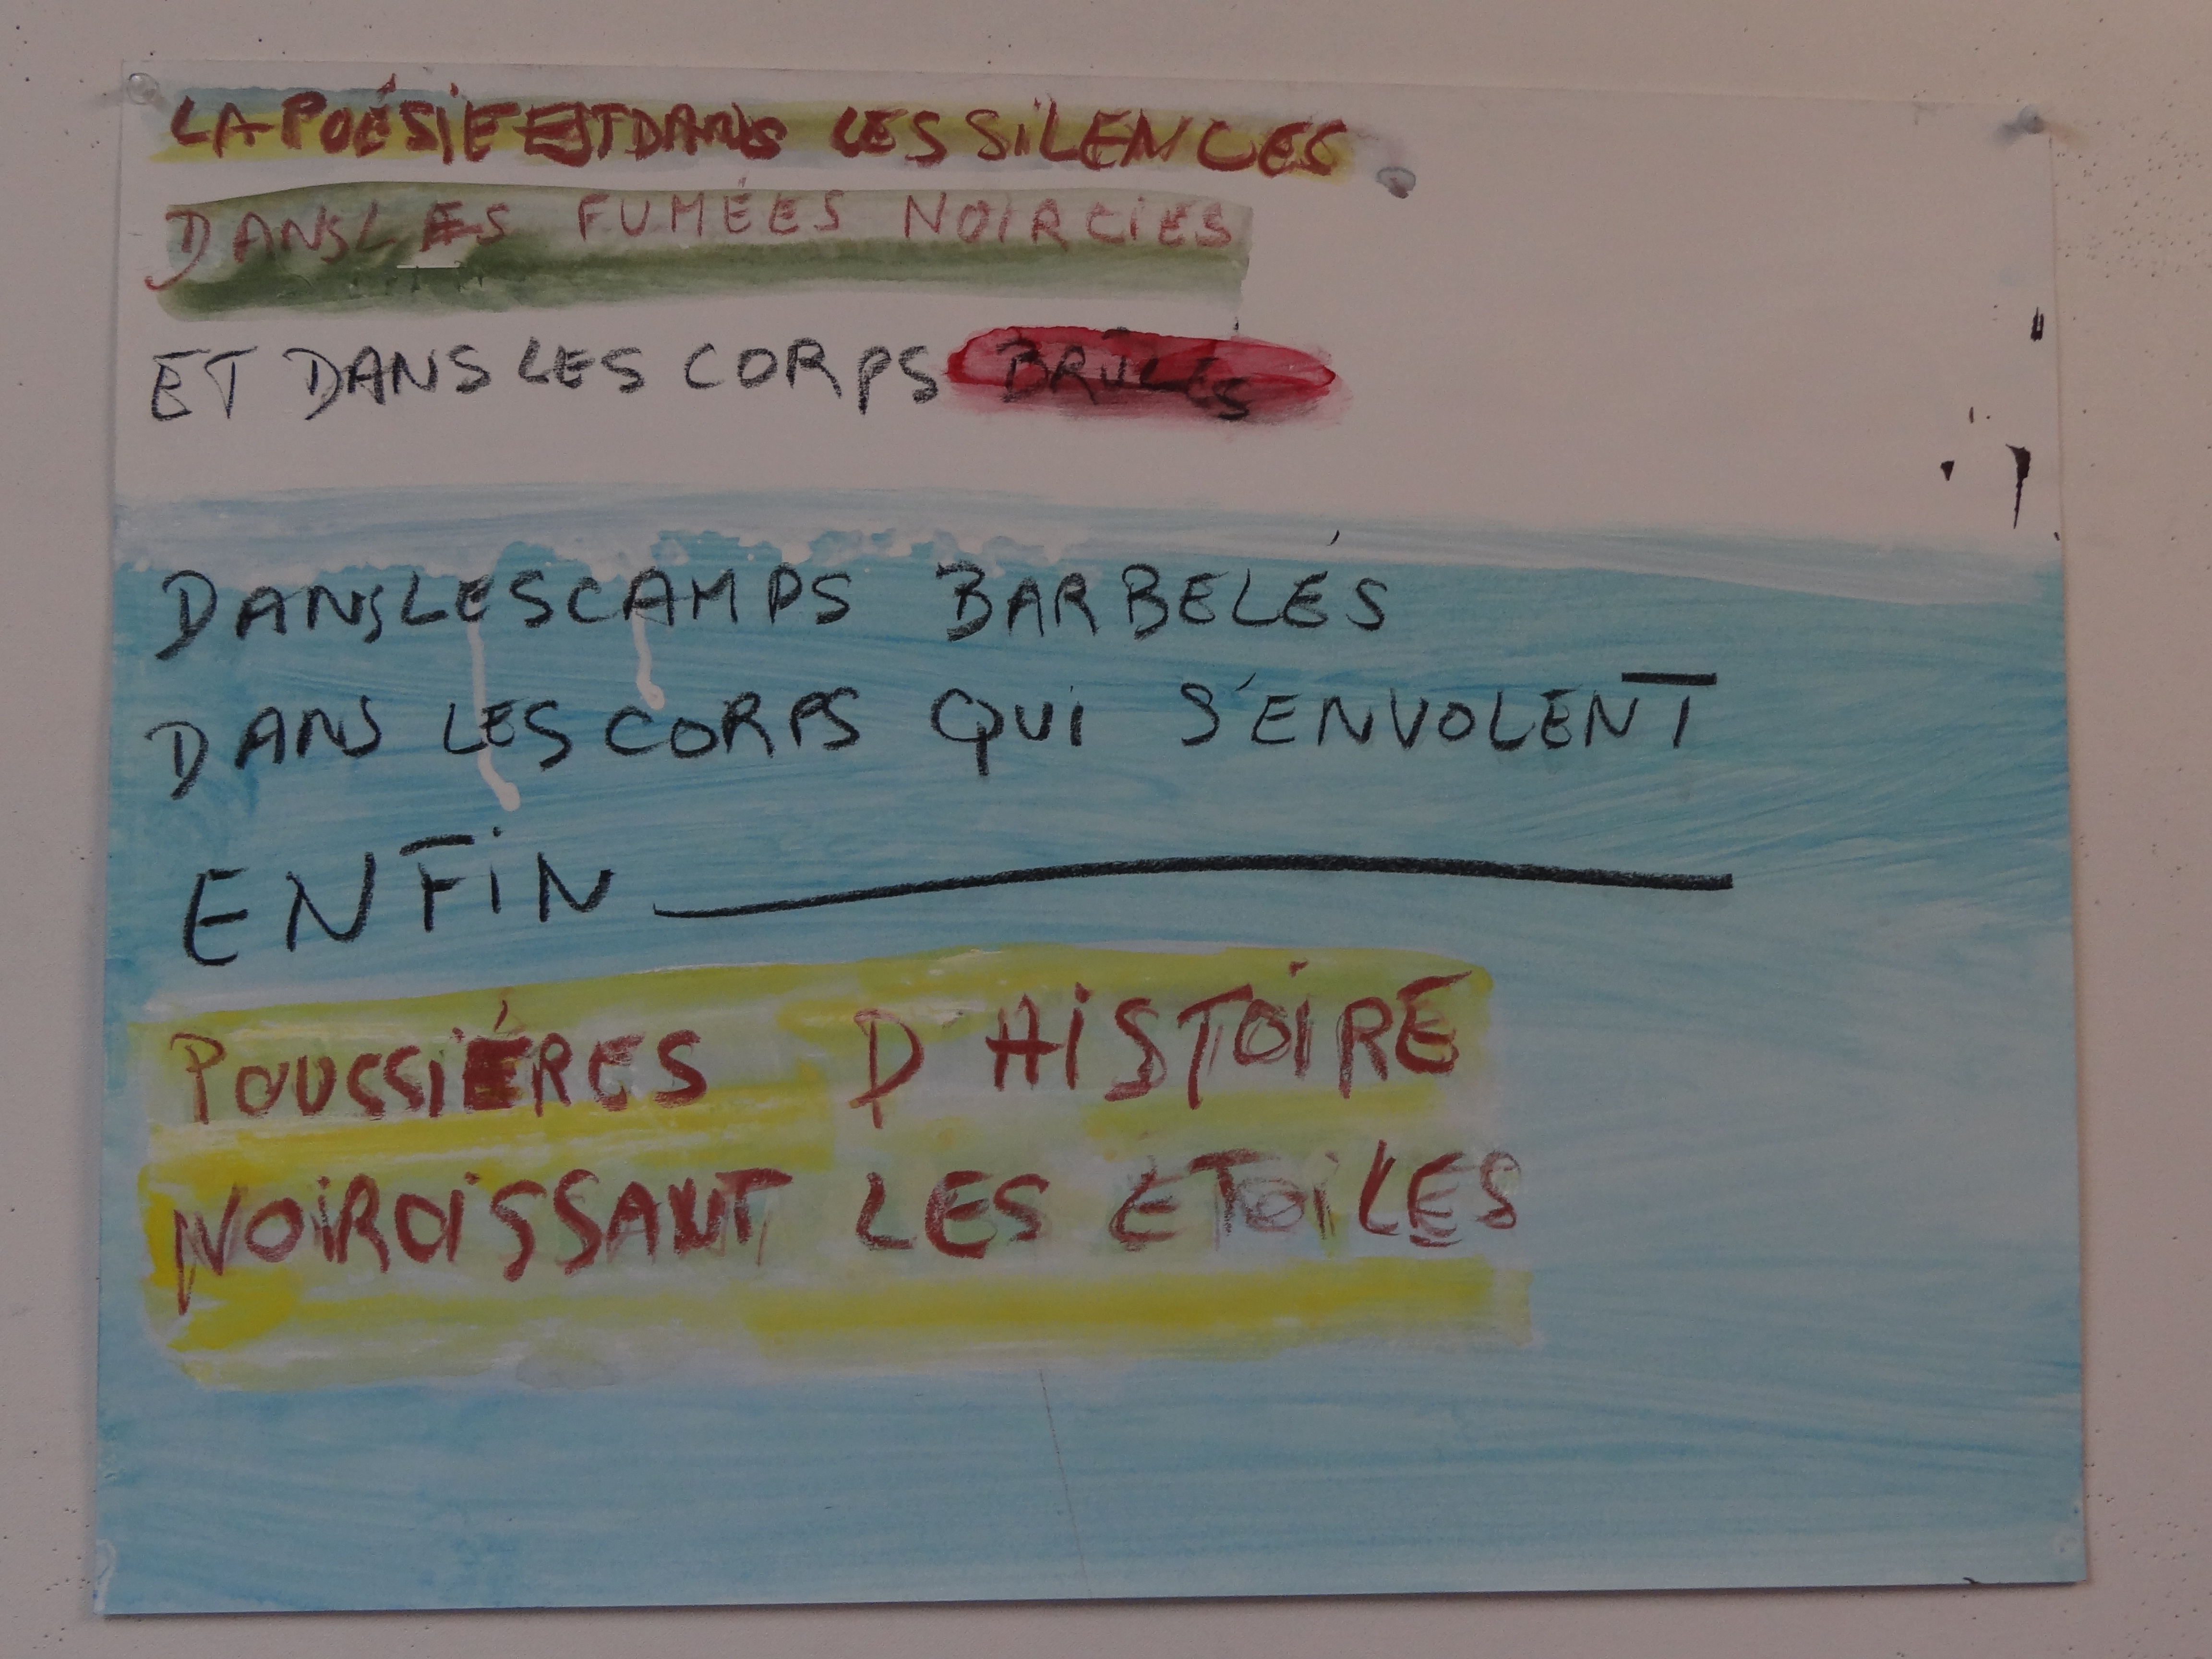 LA POÉSIE EST DANS LES SILENCES
DANS LES FUMÉES NOIRCIES
ET DANS LES CORPS BRÛLÉS
DANS LES CAMPS BARBELÉS
DANS LES CORPS QUI S'ENVOLENT
ENFIN
POUSSIÉRES D'HISTOIRE
NOIRCISSANT LES ETOILES